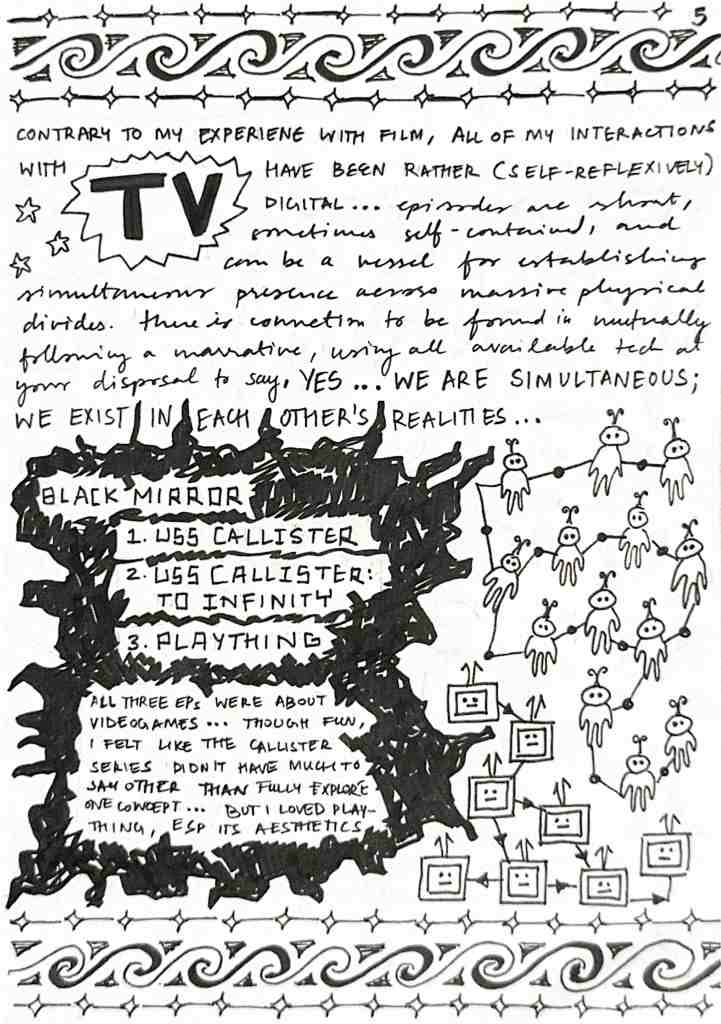 5
CONTRARY TO MY EXPERIENE WITH FILM, ALL OF MY INTERACTIONS
WITH TV HAVE BEEN RATHER (SELF-REFLEXIVELY)
DIGITAL... episodes are short,
sometimes self-contained, and
can be a vessel for establishing
simultaneous presence across massive physical
divides. there is connection to be found in mutually
following a narrative, using all available tech at
your disposal to say, YES ... WE ARE SIMULTANEOUS;
WE EXIST IN EACH OTHER'S REALITIES...
BLACK MIRROR
1. USS CALLISTER
2. USS CALLISTER:
TO INFINITY
3. PLAYTHING
ALL THREE EPS WERE ABOUT
VIDEOGAMES... THOUGH FUN,
I FELT LIKE THE CALLISTER
SERIES DIDN'T HAVE MUCH TO
SAY OTHER THAN FULLY EXPLORE
ONE CONCEPT... BUT I LOVED PLAY-
THING, ESP ITS AESTHETICS